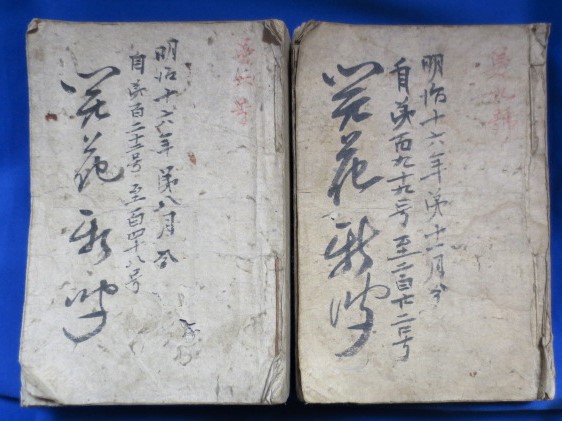 明治十六年第十一月分
自第百九十九号至二百廿二号
開花新聞
明治十六年第八月分
自第百二十三号至一百四十八号
開花新聞